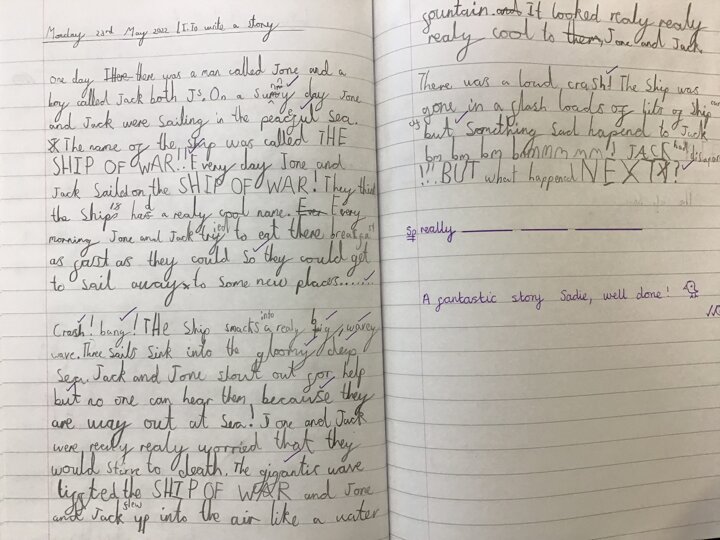 Monday 23rd May 2022 L.I. To write a story
one day there was a man called Jone and a
boy called Jack both Js. On a sunny day Jone
and Jack were sailing in the peacful sea.
The name of the ship was called THE
SHIP OF WAR!!! Every day Jone and
Jack saild on the SHIP OF WAR! They
the ship's had a realy cool name. Every
morning Jone and Jack tryed to eat there breakfast
as fast as they could so they could get
to sail away to some new places.......
Crash! bang! THe ship smacks into a realy big, wavey
wave. Three sails sink into the gloomy deep
sea. Jack and Jone shout out for help
but no one can hear them because they
are way out at sea! Jone and Jack
were realy realy worried that they
would starve to death. The gigantic wave
lifted the SHIP OF WAR and Jone
and Jack flew up into the air like a water
fountain. It looked realy realy
realy cool to Jone and Jack.
There was a loud, crash! The ship was
gone in a flash loads of bits of ship
but something sad hapend to Jack
bm bm bm bmmmm mm! JACK had
!!! BUT what happened NEXT?
Sp really
A fantastic story Sadie, well done!